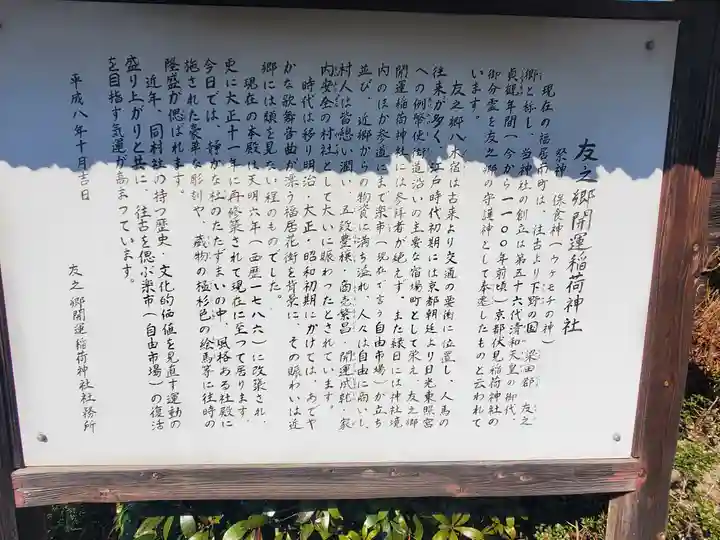 友之郷開運稲荷神社
祭神 保食神(ウケモチの神)
現在の福居市町は、往古より下野の国 梁田郡 友之
郷と称し、当神社の創立は第五十六代清和天皇の御代
貞観年間(今から一一〇〇年前頃)京都伏見稲荷神社の
御分霊を友之郷の守護神として奉遷したものと云われて
います。
友之郷八木宿は古来より交通の要衝に位置し、人馬の
往来が多く、江戸時代初期には京都朝廷より日光東照宮
への例幣使街道沿いの主要な宿場町として栄え、友之郷
開運稲荷神社には参拝者が絶えず、また縁日には神社境
内のほか参道にまで楽市(現在で言う自由市場)が立ち
並び、近郷からの物資に満ち溢れ、人々は自由に商いし、
村人は皆憩い潤い、五穀豊穣・商売繁昌・開運成就・家
内安全の村社として大いに賑わったとされています。
時代は移り明治・大正・昭和初期にかけては、あでや
かな歌舞音曲が漂う福居花街を背景に、その賑わいは近
郷には類を見ない程のものでした。
現在の本殿は天明六年(西歴一七八六)に改築され、
更に大正十一年に再修築されて現在に至って居ります。
今日では、静かな杜のたたずまいの中、風格ある社殿に
施された豪華な彫刻や、蔵物の極彩色の絵馬等に往時の
隆盛が偲ばれます。
近年、同村社の持つ歴史・文化的価値を見直す運動の
盛り上がりと共に、往古を偲ぶ楽市(自由市場)の復活
を目指す気運が高まっています。
平成八年十月吉日
友之郷開運稲荷神社社務所